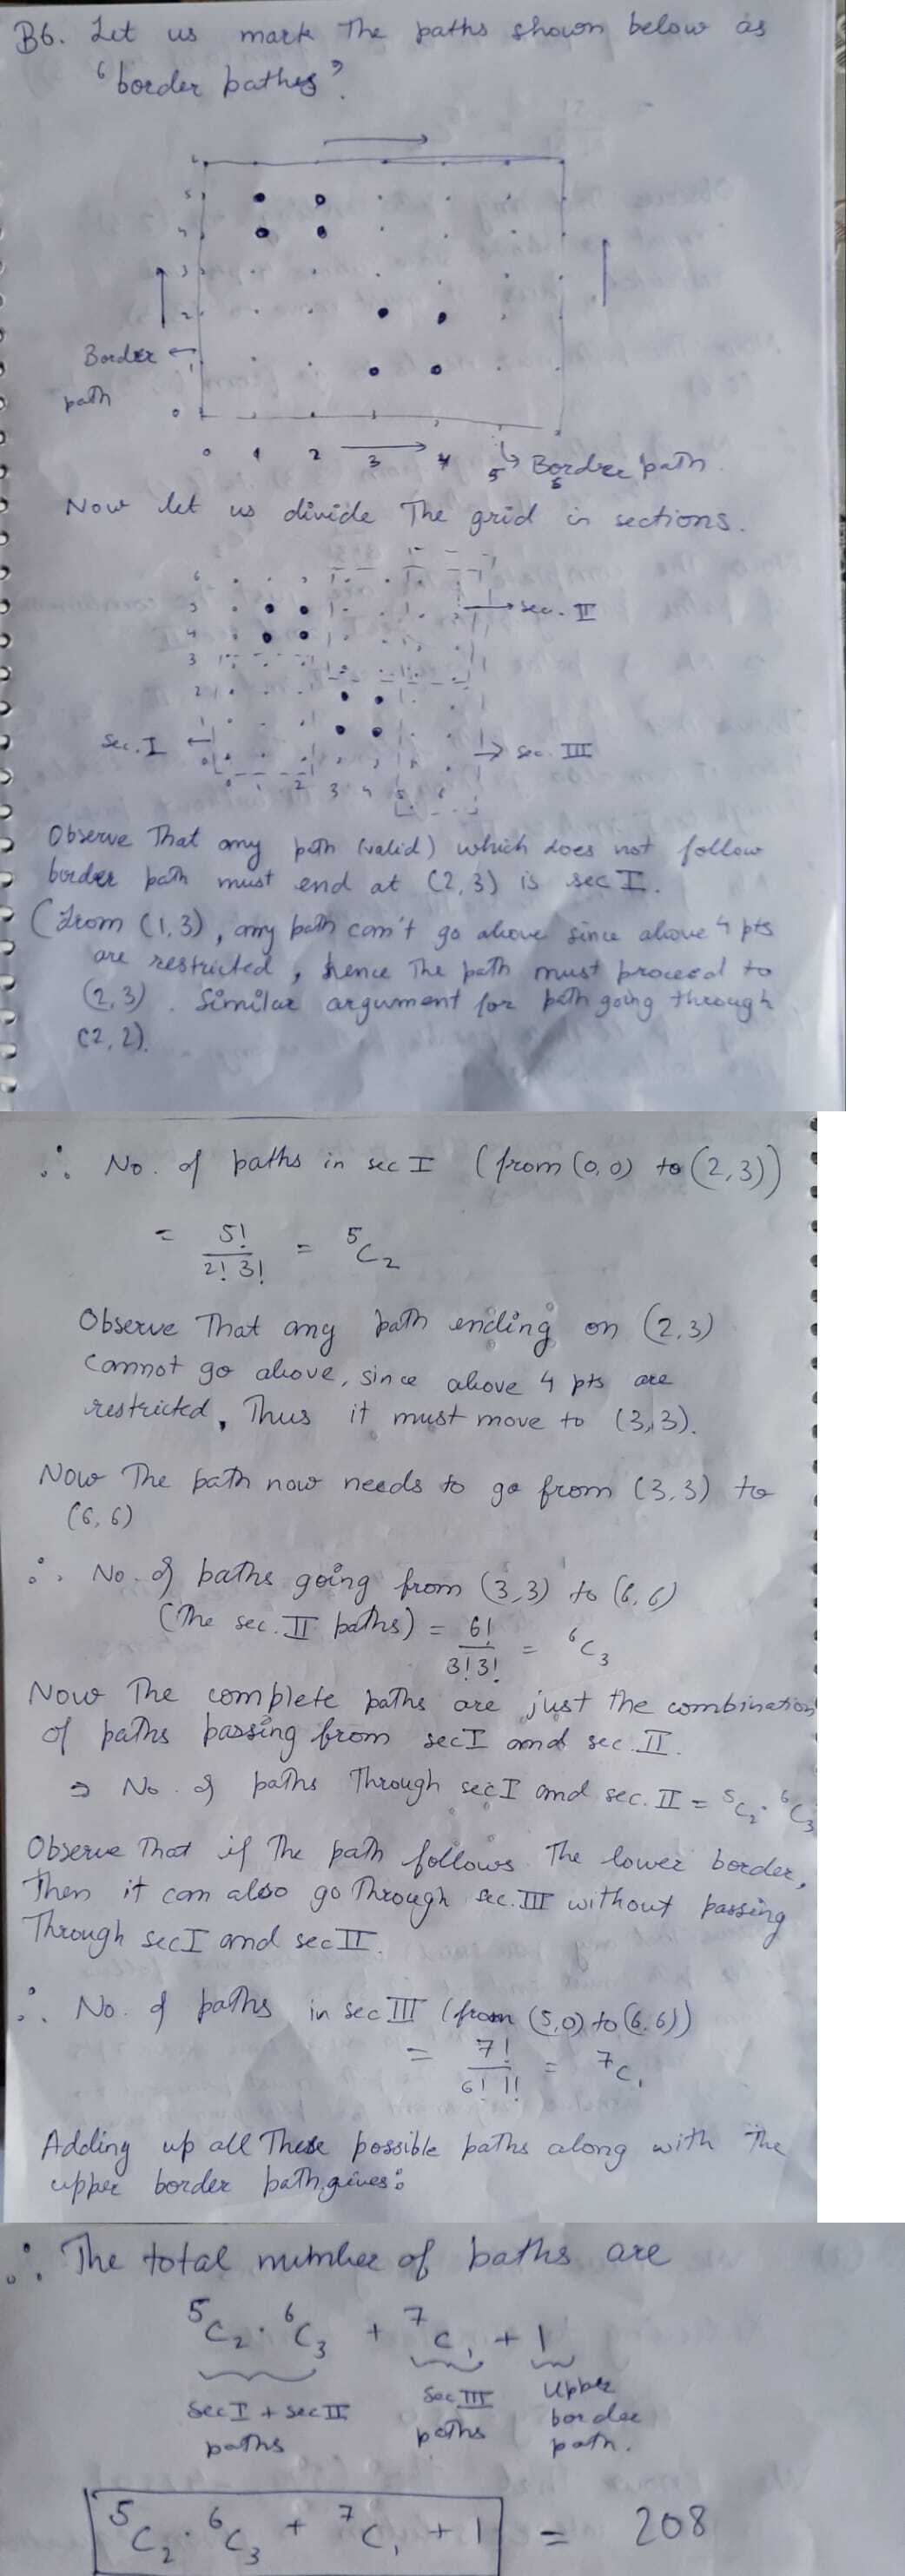 B6. Let us mark the paths shown below as
"border pathes".
6
5
4
3
2
1
0
Border
path
0 1 2 3 4 5 6
Border path
Now let us divide the grid in sections.
6
5
4
3
2
1
0
sec. II
sec. I
sec. III
0 1 2 3 4 5 6
Observe that any path (valid) which does not follow
border path must end at (2,3) is sec I.
(From (1,3), any path can't go above since above 4 pts
are restricted, hence the path must proceed to
(2,3). Similar argument for path going through
(2,2).
∴ No. of paths in sec I (from (0,0) to (2,3))
= 5!/2! 3! = ⁵C₂
Observe that any path ending on (2,3)
cannot go above, since above 4 pts are
restricted, Thus it must move to (3,3).
Now the path now needs to go from (3,3) to
(6,6)
∴ No. of paths going from (3,3) to (6,6)
(The sec. II paths) = 6!/3! 3! = ⁶C₃
Now the complete paths are just the combination
of paths passing from sec I and sec. II.
⇒ No. of paths through sec I and sec. II = ⁵C₂ · ⁶C₃
Observe that if the path follows the lower border,
then it can also go through sec. III without passing
through sec I and sec II.
∴ No. of paths in sec III (from (5,0) to (6,6))
= 7!/6! 1! = ⁷C₁
Adding up all these possible paths along with the
upper border path gives:
∴ The total number of paths are
⁵C₂ · ⁶C₃ + ⁷C₁ + 1
sec I + sec II paths
sec III paths
Upper border path.
⁵C₂ · ⁶C₃ + ⁷C₁ + 1 = 208